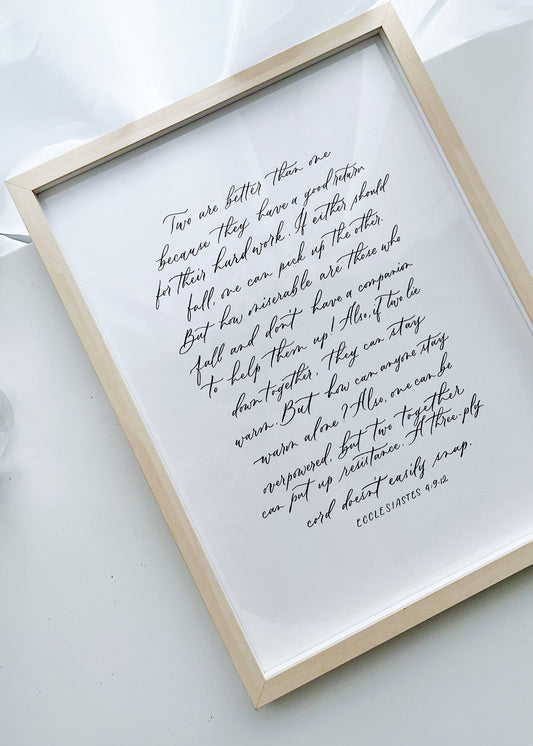 Two are better than one
because they have a good return
for their hard work. If either should
fall, one can pick up the other.
But how miserable are those who
fall and don't have a companion
to help them up! Also, if two lie
down together, they can stay
warm. But how can anyone stay
warm alone? Also, one can be
overpowered, but two together
can put up resistance. A three-ply
cord doesn't easily snap.
ECCLESIASTES 4:9-12